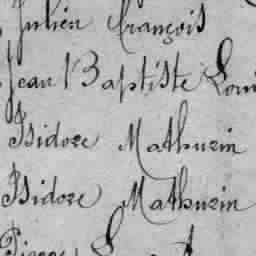 Julien François
Jean Baptiste Loui
Isidore Mathurin
Isidore Mathurin
Pierre